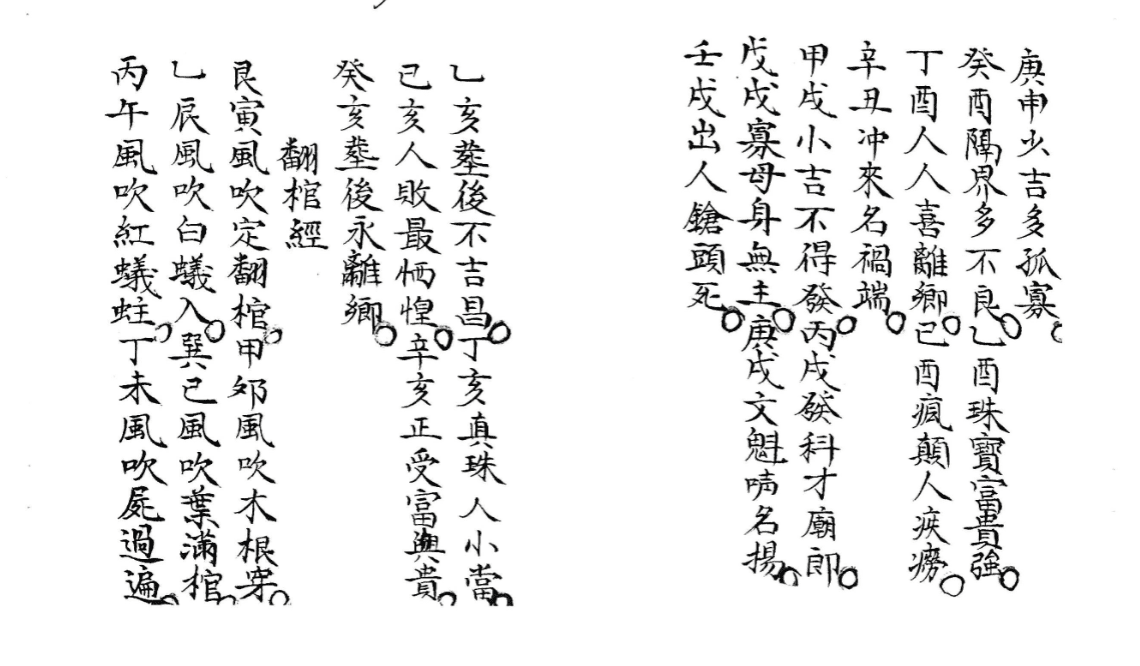 庚申少吉多孤寡○
癸酉隔界多不良○乙酉珠寶富貴強○
丁酉人人喜離鄉○己酉瘋顛人疾癆○
辛丑冲來名禍端○
甲戌小吉不得發○丙戌發科才廟郎○
戊戌寡母身無主○庚戌文魁名揚○
壬戌出人鎗頭死○
乙亥塟後不吉昌○丁亥真珠人小當○
己亥人敗最恓惶○辛亥正受富與貴○
癸亥塟後永離鄉○
翻棺經
艮寅風吹定翻棺○甲夘風吹木根穿○
乙辰風吹白蟻入○巽巳風吹葉滿棺○
丙午風吹紅蟻蛀○丁未風吹屍過遍○